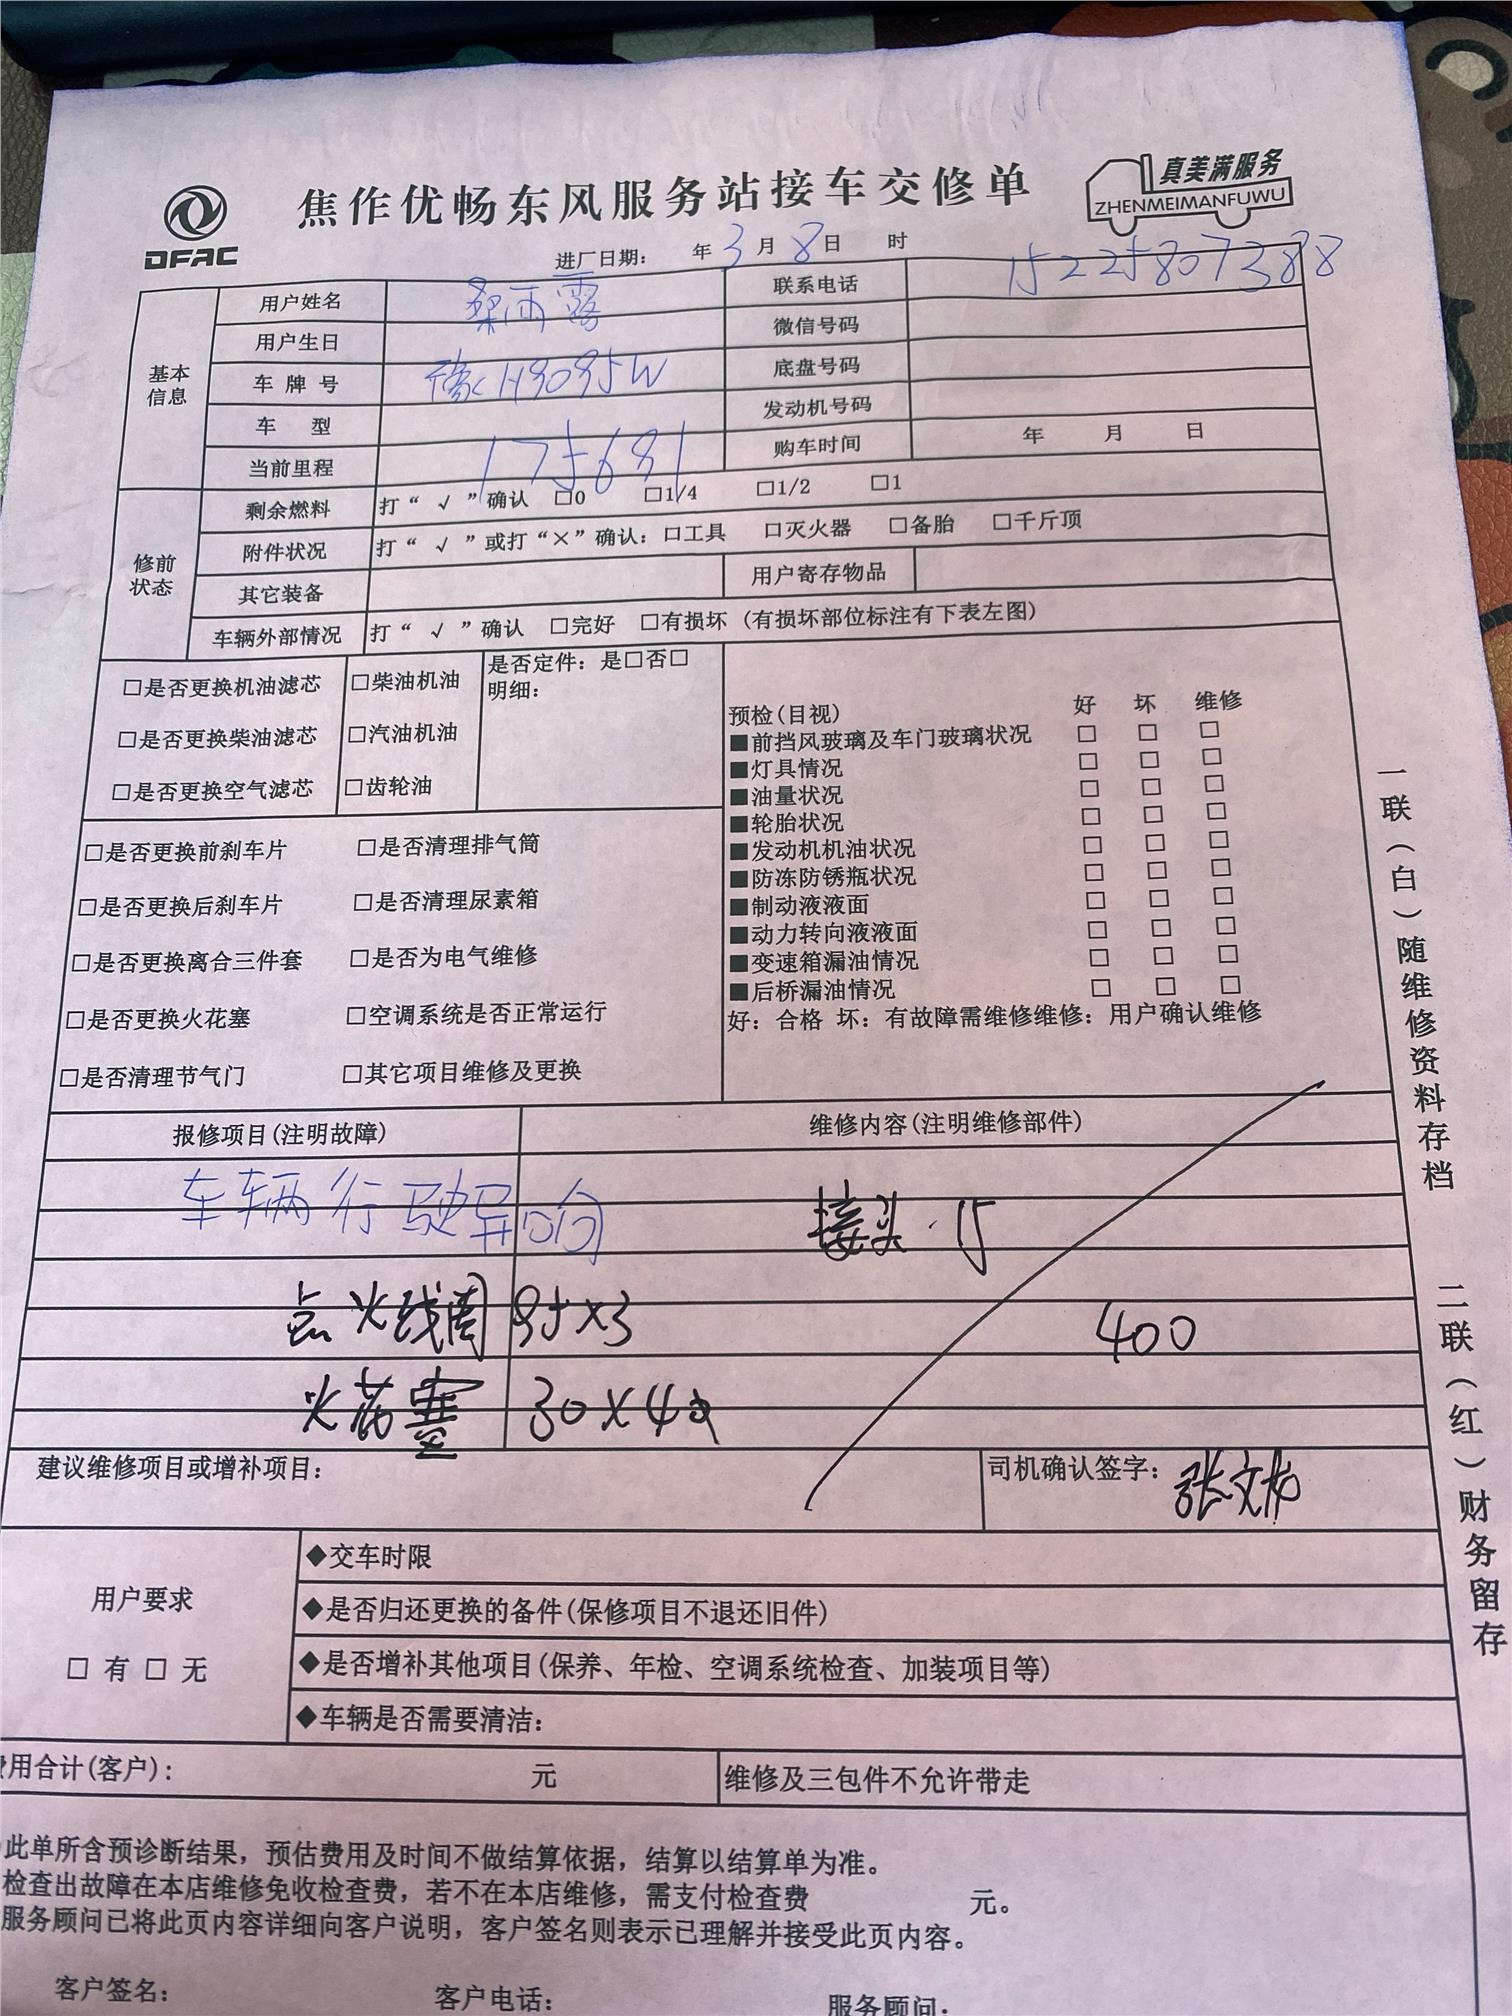 DFAC
焦作优畅东风服务站接车交修单
真美满服务
ZHENMEIMANFUWU
进厂日期： 年3月8日 时
基本信息
用户姓名 桑雨露 联系电话 15225807388
用户生日 微信号码
车牌号 豫H9095W 底盘号码
车 型 发动机号码
当前里程 175681 购车时间 年 月 日
修前状态
剩余燃料 打“√”确认 □0 □1/4 □1/2 □1
附件状况 打“√”或打“×”确认：□工具 □灭火器 □备胎 □千斤顶
其它装备 用户寄存物品
车辆外部情况 打“√”确认 □完好 □有损坏（有损坏部位标注有下表左图）
□是否更换机油滤芯 □柴油机油 是否定件：是□否□
明细：
□是否更换柴油滤芯 □汽油机油
□是否更换空气滤芯 □齿轮油
□是否更换前刹车片 □是否清理排气筒
□是否更换后刹车片 □是否清理尿素箱
□是否更换离合三件套 □是否为电气维修
□是否更换火花塞 □空调系统是否正常运行
□是否清理节气门 □其它项目维修及更换
预检(目视) 好 坏 维修
■前挡风玻璃及车门玻璃状况 □ □ □
■灯具情况 □ □ □
■油量状况 □ □ □
■轮胎状况 □ □ □
■发动机机油状况 □ □ □
■防冻防锈瓶状况 □ □ □
■制动液液面 □ □ □
■动力转向液液面 □ □ □
■变速箱漏油情况 □ □ □
■后桥漏油情况 □ □ □
好：合格 坏：有故障需维修维修：用户确认维修
报修项目(注明故障) 维修内容(注明维修部件)
车辆行驶异响 接头 15
点火线圈 95×3 400
火花塞 30×4
建议维修项目或增补项目： 司机确认签字：张文龙
用户要求
□ 有 □ 无
◆交车时限
◆是否归还更换的备件(保修项目不退还旧件)
◆是否增补其他项目(保养、年检、空调系统检查、加装项目等)
◆车辆是否需要清洁：
用合计(客户)： 元 维修及三包件不允许带走
此单所含预诊断结果，预估费用及时间不做结算依据，结算以结算单为准。
检查出故障在本店维修免收检查费，若不在本店维修，需支付检查费 元。
服务顾问已将此页内容详细向客户说明，客户签名则表示已理解并接受此页内容。
客户签名： 客户电话： 服务顾问：
一联（白）随维修资料存档
二联（红）财务留存